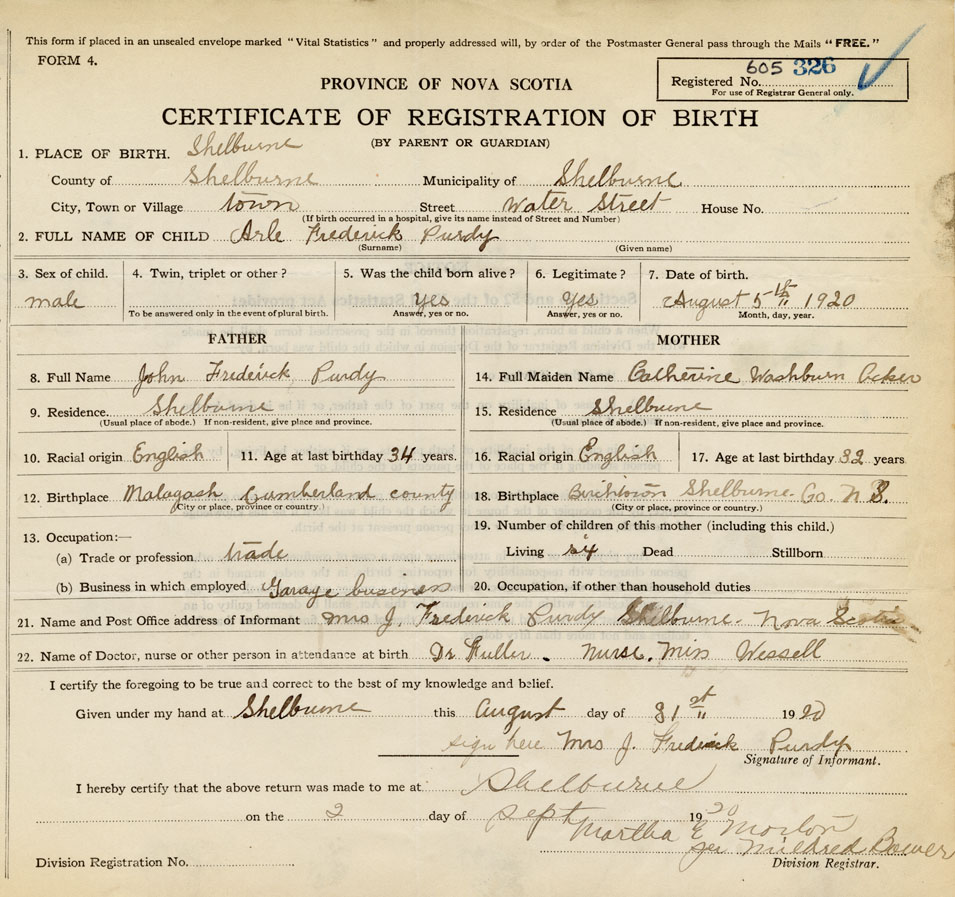 This form if placed in an unsealed envelope marked "Vital Statistics" and properly addressed will, by order of the Postmaster General pass through the Mails "FREE."
FORM 4.
605 326
Registered No.
For use of Registrar General only.
PROVINCE OF NOVA SCOTIA
CERTIFICATE OF REGISTRATION OF BIRTH
(BY PARENT OR GUARDIAN)
1. PLACE OF BIRTH. Shelburne
County of Shelburne Municipality of Shelburne
City, Town or Village town Street Water Street House No.
(If birth occurred in a hospital, give its name instead of Street and Number)
2. FULL NAME OF CHILD Arle Frederick Purdy
(Surname) (Given name)
3. Sex of child. 4. Twin, triplet or other? 5. Was the child born alive? 6. Legitimate? 7. Date of birth.
male Yes Yes August 5th 1920
To be answered only in the event of plural birth. Answer, yes or no. Answer, yes or no. Month, day, year.
FATHER MOTHER
8. Full Name John Frederick Purdy 14. Full Maiden Name Catherine Washburn Acker
9. Residence. Shelburne 15. Residence Shelburne
(Usual place of abode.) If non-resident, give place and province. (Usual place of abode.) If non-resident, give place and province.
10. Racial origin English 11. Age at last birthday 34 years. 16. Racial origin English 17. Age at last birthday 32 years
12. Birthplace Malagash Cumberland county 18. Birthplace Shelburne. Co. N S.
(City or place, province or country.) (City or place, province or country.)
19. Number of children of this mother (including this child.)
13. Occupation:—
(a) Trade or profession trade Living 4 Dead Stillborn
(b) Business in which employed Garage business 20. Occupation, if other than household duties
21. Name and Post Office address of Informant Mrs J. Frederick Purdy Shelburne. Nova Scotia
22. Name of Doctor, nurse or other person in attendance at birth Dr Fuller. Nurse. Miss Wessell
I certify the foregoing to be true and correct to the best of my knowledge and belief.
Given under my hand at Shelburne this August day of 31st 1920
sign here Mrs J. Frederick Purdy
Signature of Informant.
I hereby certify that the above return was made to me at Shelburne
on the 2 day of Sept 1920
Martha E Morton
per Mildred Bower
Division Registration No. Division Registrar.